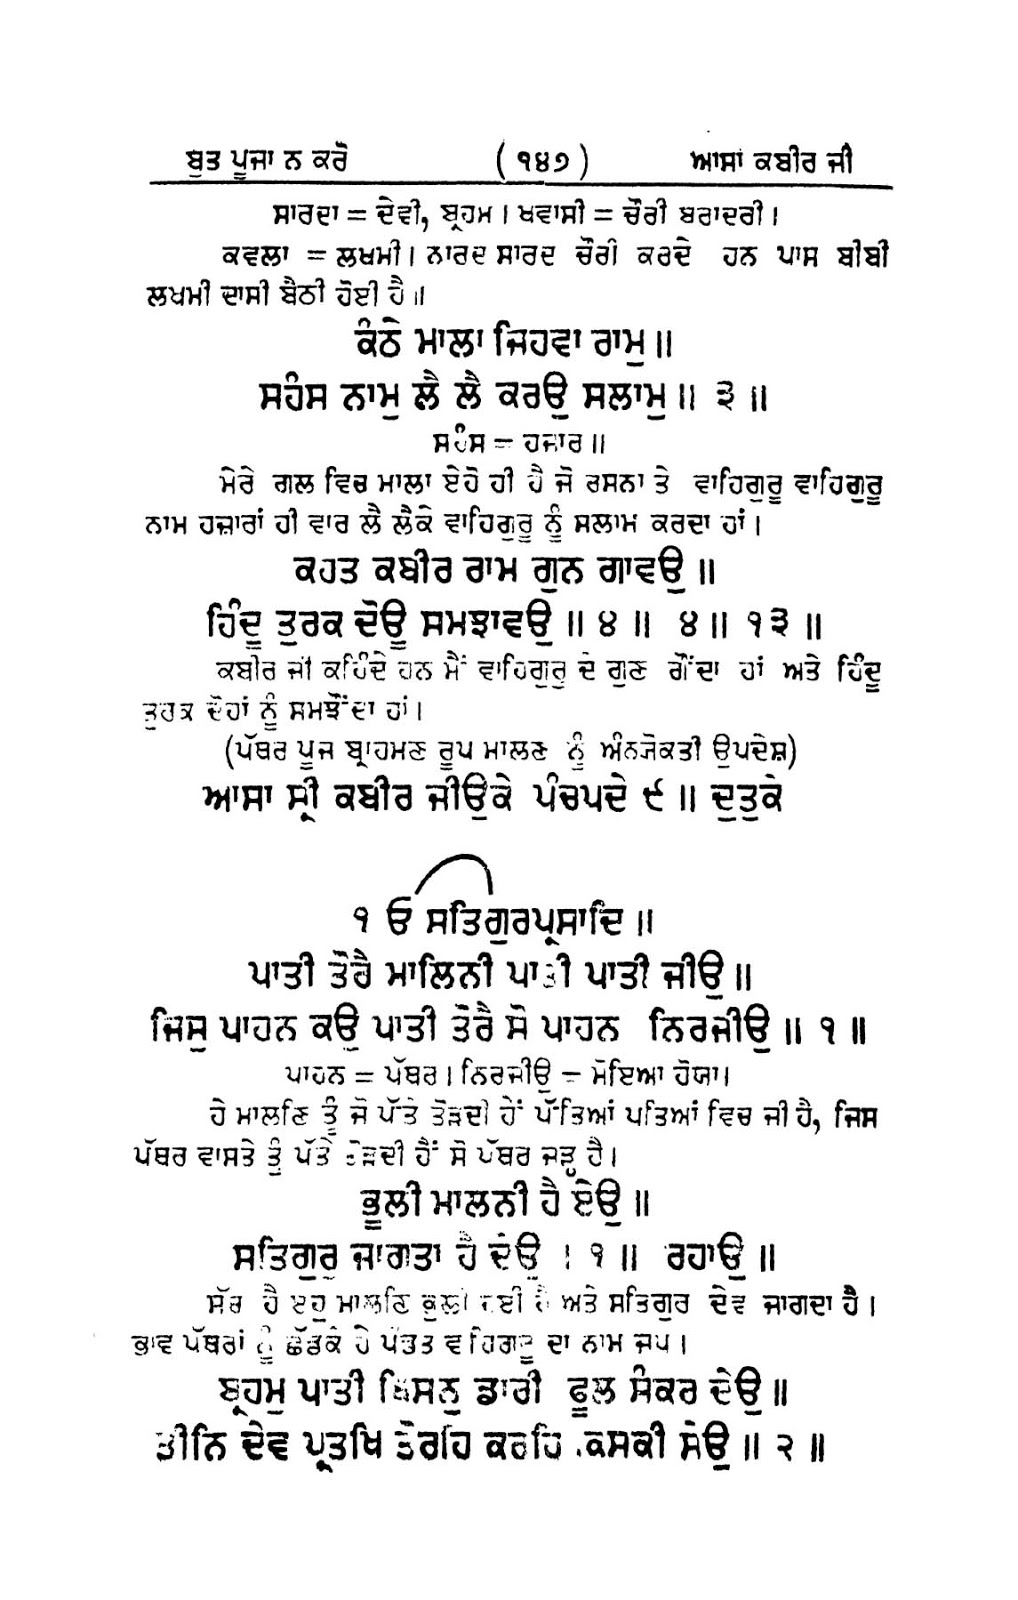 ਬੁਤ ਪੂਜਾ ਨ ਕਰੋ (੧੪੭) ਆਸਾ ਕਬੀਰ ਜੀ
ਸਾਰਦਾ = ਦੇਵੀ, ਬ੍ਰਹਮ। ਖਵਾਸੀ = ਚੌਰੀ ਬਰਾਦਰੀ।
ਕਵਲਾ = ਲਖਮੀ। ਨਾਰਦ ਸਾਰਦ ਚੌਰੀ ਕਰਦੇ ਹਨ ਪਾਸ ਬੀਬੀ
ਲਖਮੀ ਦਾਸੀ ਬੈਠੀ ਹੋਈ ਹੈ॥
ਕੰਠੇ ਮਾਲਾ ਜਿਹਵਾ ਰਾਮੁ॥
ਸਹੰਸ ਨਾਮੁ ਲੈ ਲੈ ਕਰਉ ਸਲਾਮੁ॥ ੩॥
ਸਹੰਸ = ਹਜਾਰ॥
ਮੇਰੇ ਗਲ ਵਿਚ ਮਾਲਾ ਏਹੋ ਹੀ ਹੈ ਜੋ ਰਸਨਾ ਤੇ ਵਾਹਿਗੁਰੂ ਵਾਹਿਗੁਰੂ
ਨਾਮ ਹਜ਼ਾਰਾਂ ਹੀ ਵਾਰ ਲੈ ਲੈਕੇ ਵਾਹਿਗੁਰੂ ਨੂੰ ਸਲਾਮ ਕਰਦਾ ਹਾਂ।
ਕਹਤ ਕਬੀਰ ਰਾਮ ਗੁਨ ਗਾਵਉ॥
ਹਿੰਦੂ ਤੁਰਕ ਦੋਊ ਸਮਝਾਵਉ॥੪॥ ੪॥ ੧੩॥
ਕਬੀਰ ਜੀ ਕਹਿੰਦੇ ਹਨ ਮੈਂ ਵਾਹਿਗੁਰੂ ਦੇ ਗੁਣ ਗੌਂਦਾ ਹਾਂ ਅਤੇ ਹਿੰਦੂ
ਤੁਰਕ ਦੋਹਾਂ ਨੂੰ ਸਮਝੌਂਦਾ ਹਾਂ।
(ਪੱਥਰ ਪੂਜ ਬ੍ਰਾਹਮਣ ਰੂਪ ਮਾਲਣ ਨੂੰ ਅੰਨਯੋਕਤੀ ਉਪਦੇਸ਼)
ਆਸਾ ਸ੍ਰੀ ਕਬੀਰ ਜੀਉਕੇ ਪੰਚਪਦੇ ੯॥ ਦੁਤੁਕੇ
੧ਓ ਸਤਿਗੁਰਪ੍ਰਸਾਦਿ॥
ਪਾਤੀ ਤੋਰੈ ਮਾਲਿਨੀ ਪਾਤੀ ਪਾਤੀ ਜੀਉ॥
ਜਿਸੁ ਪਾਹਨ ਕਉ ਪਾਤੀ ਤੋਰੈ ਸੋ ਪਾਹਨ ਨਿਰਜੀਉ॥ ੧॥
ਪਾਹਨ = ਪੱਥਰ। ਨਿਰਜੀਉ = ਮੋਇਆ ਹੋਯਾ।
ਹੇ ਮਾਲਣਿ ਤੂੰ ਜੋ ਪੱਤੇ ਤੋੜਦੀ ਹੇਂ ਪੱਤਿਆਂ ਪਤਿਆਂ ਵਿਚ ਜੀ ਹੈ, ਜਿਸ
ਪੱਥਰ ਵਾਸਤੇ ਤੂੰ ਪੱਤੇ ਤੋੜਦੀ ਹੈਂ ਸੋ ਪੱਥਰ ਜੜ੍ਹ ਹੈ।
ਭੂਲੀ ਮਾਲਨੀ ਹੈ ਏਉ॥
ਸਤਿਗੁਰੁ ਜਾਗਤਾ ਹੈ ਦੇਉ । ੧॥ ਰਹਾਉ॥
ਸੱਚ ਹੈ ਏਹੁ ਮਾਲਣਿ ਭੁਲੀ ਹੋਈ ਹੈ ਅਤੇ ਸਤਿਗੁਰ ਦੇਵ ਜਾਗਦਾ ਹੈ।
ਭਾਵ ਪੱਥਰਾਂ ਨੂੰ ਛੱਡਕੇ ਹੇ ਪੰਡਤ ਵਾਹਿਗੁਰੂ ਦਾ ਨਾਮ ਜਪ।
ਬ੍ਰਹਮੁ ਪਾਤੀ ਬਿਸਨੁ ਡਾਰੀ ਫੂਲ ਸੰਕਰ ਦੇਉ॥
ਤੀਨਿ ਦੇਵ ਪ੍ਰਤਖਿ ਤੋਰਹਿ ਕਰਹਿ ਕਿਸਕੀ ਸੇਉ॥੨॥